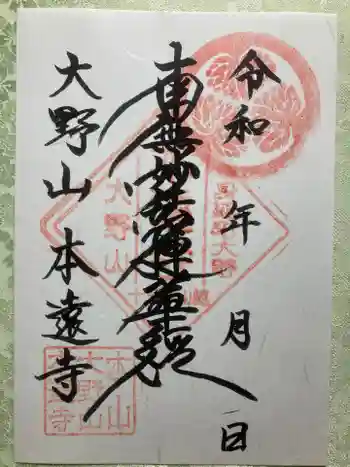 令和 年 月 日
南無妙法蓮華経
大野山 本遠寺
大野山
本山
大野山
本遠寺